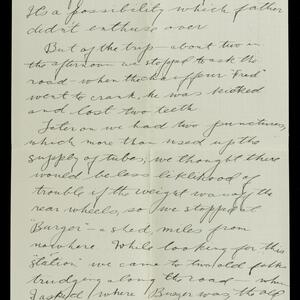 It's a possibility which father
didn't enthuse over
But of the trip - about two in
the afternoon we stopped to ask the
road - when the chauffeur "Fred"
went to crank, he was kicked
and lost two teeth
Later on we had two punctures,
which more than used up the
supply of tubes, we thought there
would be less liklihood of
trouble if the weight was off the
rear wheels, so we stopped at
"Burger" - a shed, miles from
nowhere. While looking for this
"station" we came to two old folks
trudging along the road - when
I asked where Burger was the old